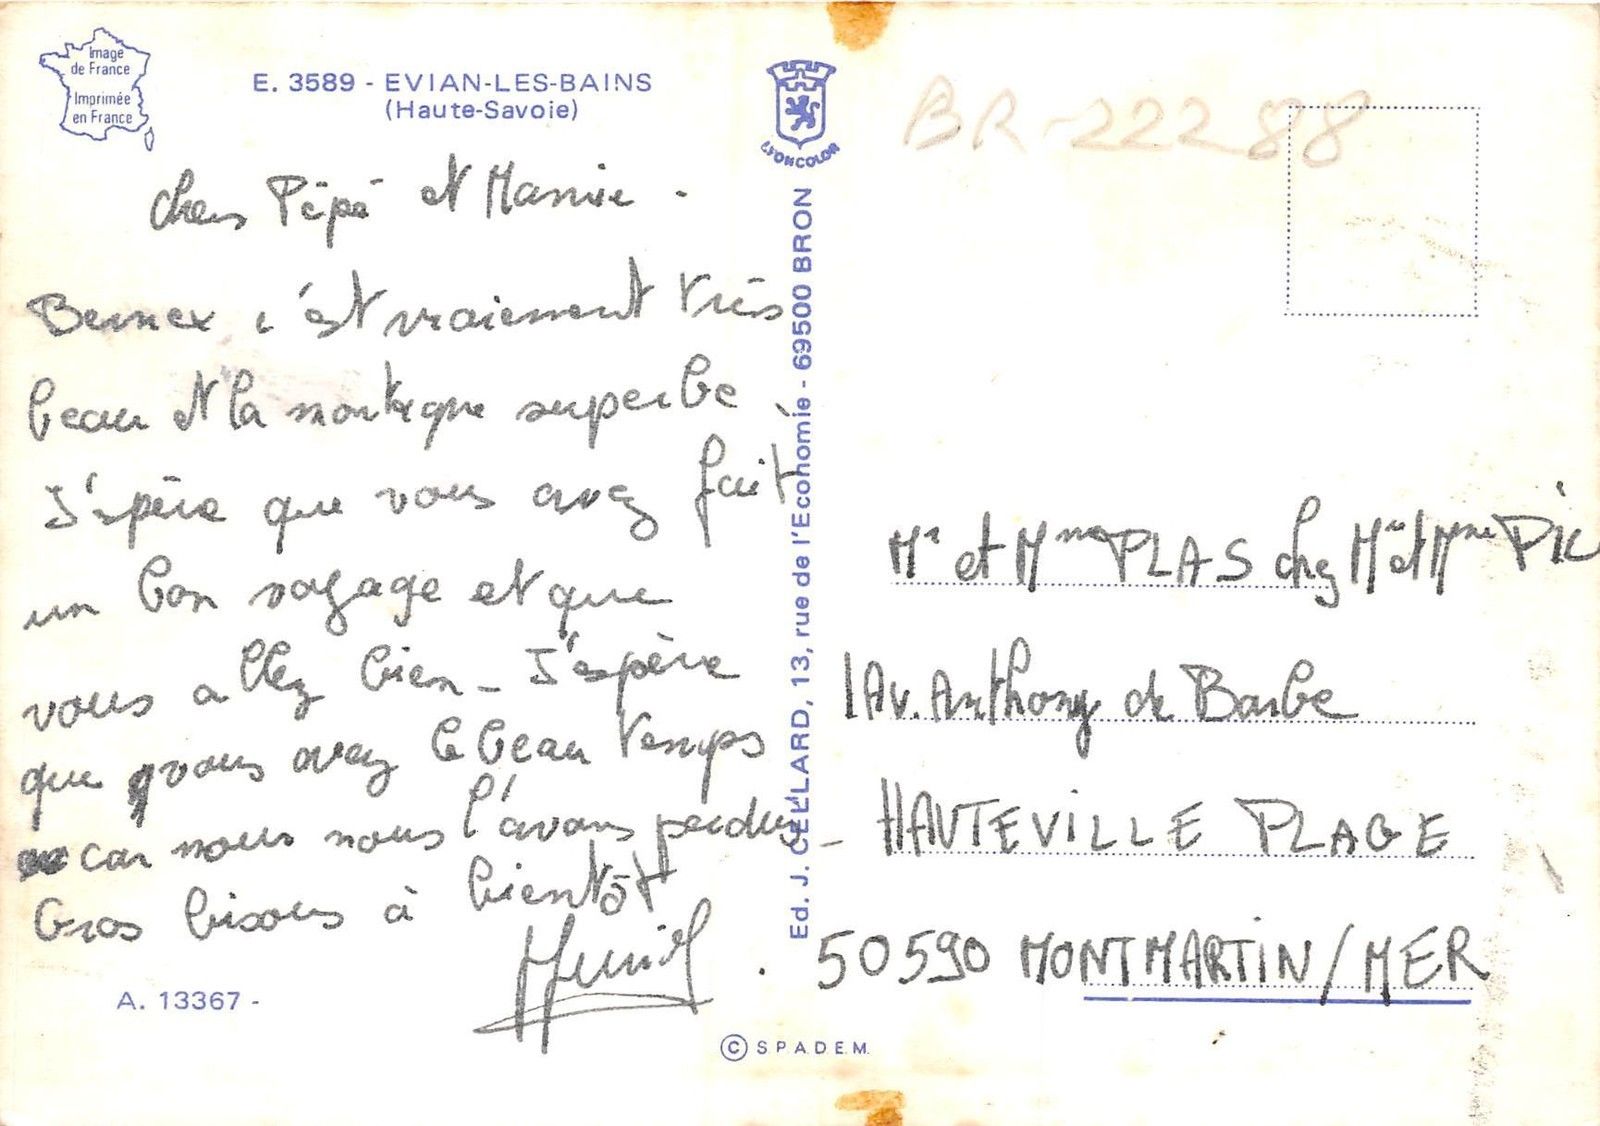 Image
de France
Imprimée
en France
E. 3589 - EVIAN-LES-BAINS
(Haute-Savoie)
LYONCOLOR
BR-22288
Chers Pépé et Mamie.
Bernex c'est vraiement très
beau et la montagne superbe.
J'espère que vous avez fait
un bon voyage et que
vous allez bien - J'espère
que vous avez le beau temps
car nous nous l'avons perdu -
Gros bisous à bientôt
Muriel
A. 13367 -
Ed. J. CELLARD, 13, rue de l'Economie - 69500 BRON
© S.P.A.D.E.M.
Mr et Mme PLAS chez Mr et Mme PIC
1 Av. Anthony de Barbe
HAUTEVILLE PLAGE
50590 MONTMARTIN/MER